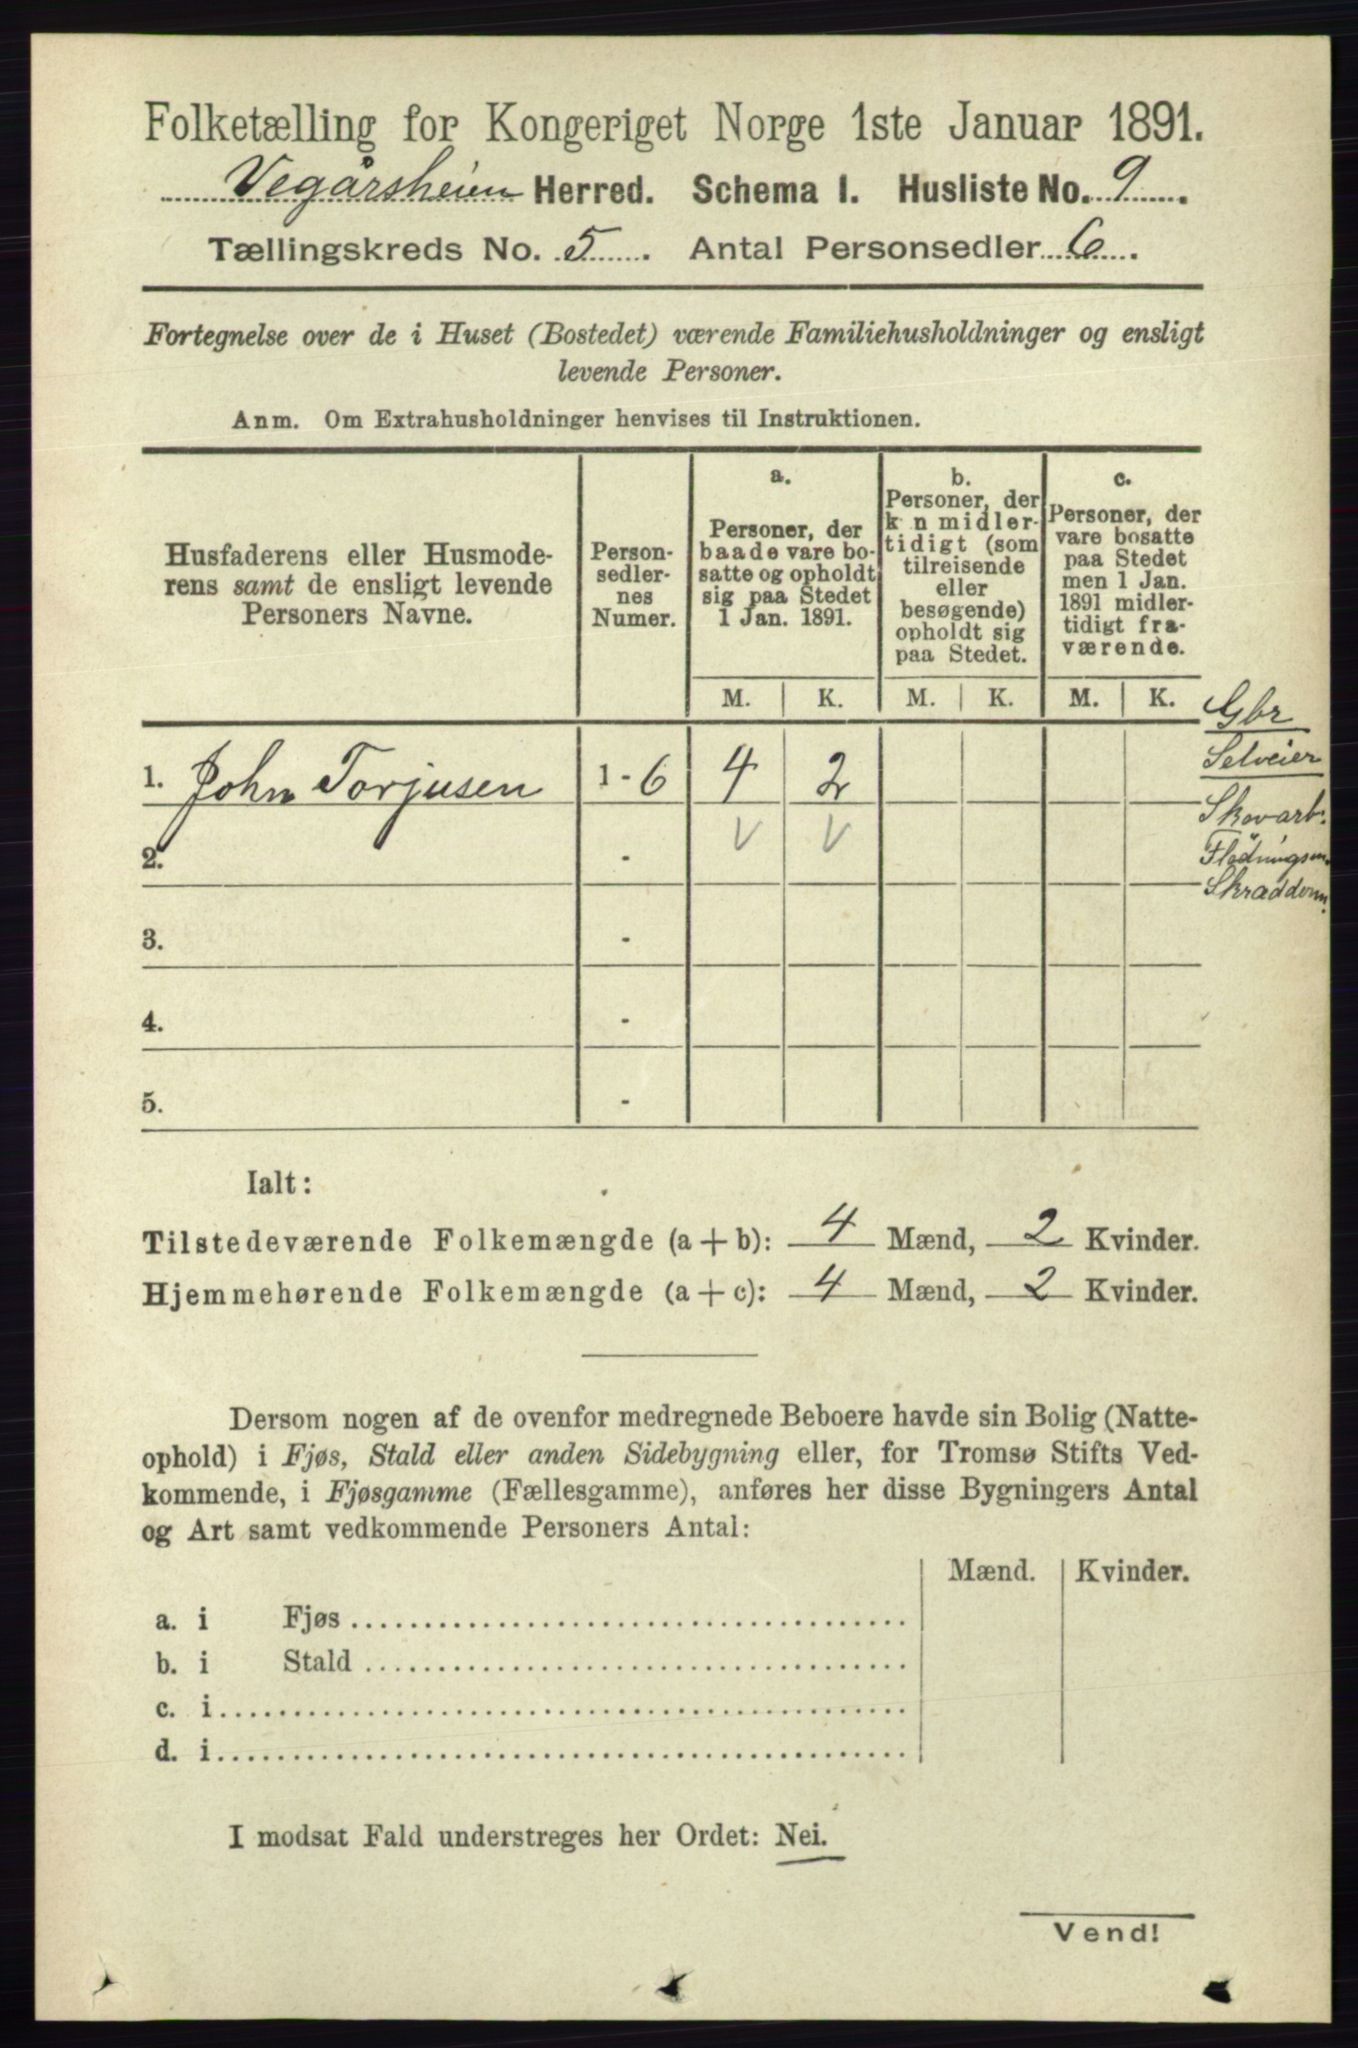 Folketælling for Kongeriget Norge 1ste Januar 1891.
Vegårsheien Herred. Schema I. Husliste No. 9.
Tællingskreds No. 5. Antal Personsedler 6.
Fortegnelse over de i Huset (Bostedet) værende Familiehusholdninger og ensligt
levende Personer.
Anm. Om Extrahusholdninger henvises til Instruktionen.
Husfaderens eller Husmode-
rens samt de ensligt levende
Personers Navne.
Person-
sedler-
nes
Numer.
a.
Personer, der
baade vare bo-
satte og opholdt
sig paa Stedet
1 Jan. 1891.
b.
Personer, der
k n midler-
tidigt (som
tilreisende
eller
besøgende)
opholdt sig
paa Stedet.
c.
Personer, der
vare bosatte
paa Stedet
men 1 Jan.
1891 midler-
tidigt fra-
værende.
M. K. M. K. M. K.
Gbr
Selveier
Skovarb.
Flødningsm.
1. John Torjusen 1 - 6 4 2
V V
2. -
3. -
4. -
5. -
Ialt:
Tilstedeværende Folkemængde (a + b): 4 Mænd, 2 Kvinder.
Hjemmehørende Folkemængde (a + c): 4 Mænd, 2 Kvinder.
Dersom nogen af de ovenfor medregnede Beboere havde sin Bolig (Natte-
ophold) i Fjøs, Stald eller anden Sidebygning eller, for Tromsø Stifts Ved-
kommende, i Fjøsgamme (Fællesgamme), anføres her disse Bygningers Antal
og Art samt vedkommende Personers Antal:
Mænd. Kvinder.
a. i Fjøs
b. i Stald
c. i
d. i
I modsat Fald understreges her Ordet: Nei.
Vend!